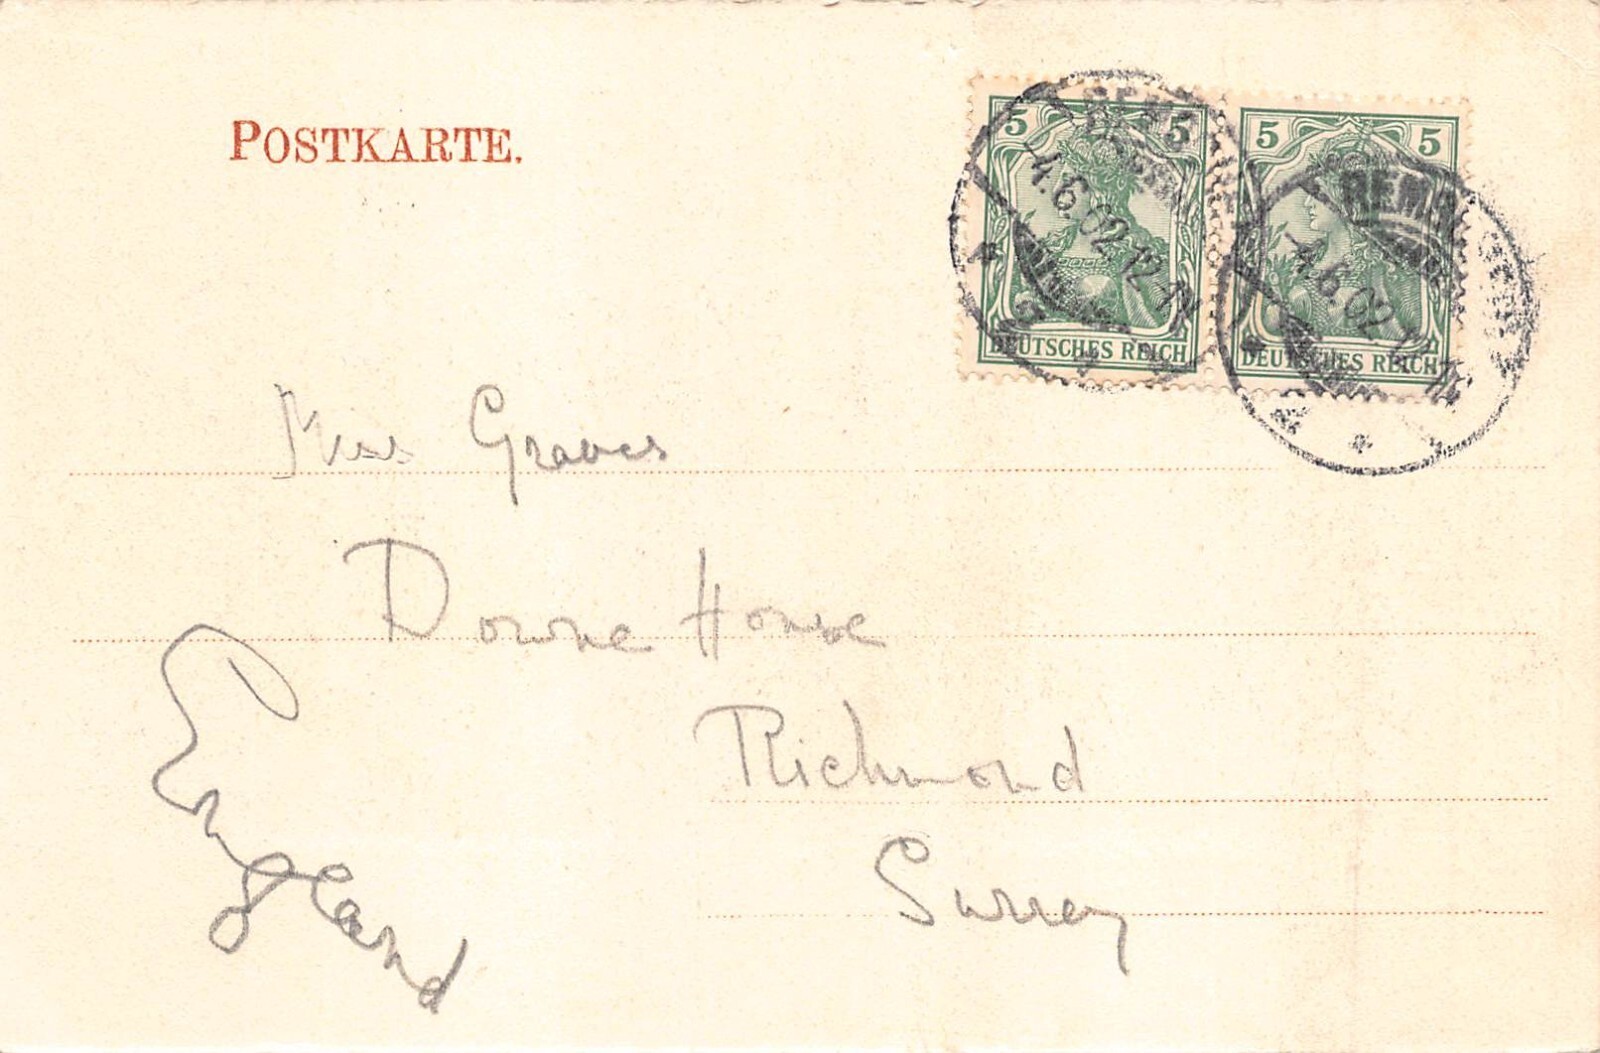 POSTKARTE.
5 5
DEUTSCHES REICH
5 5
DEUTSCHES REICH
-4.6.02.12-1N
-4.6.02
Miss Graves
Downe House
Richmond
Surrey
England